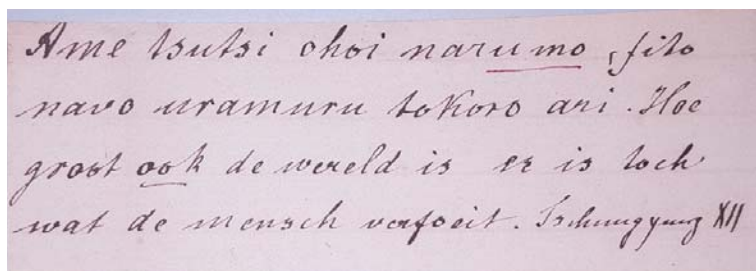 Ame tsutsi ohoi narumo, fito
navo uramuru tokoro ari. Hoe
groot ook de wereld is er is toch
wat de mensch verfoeit. Tschungyung XII